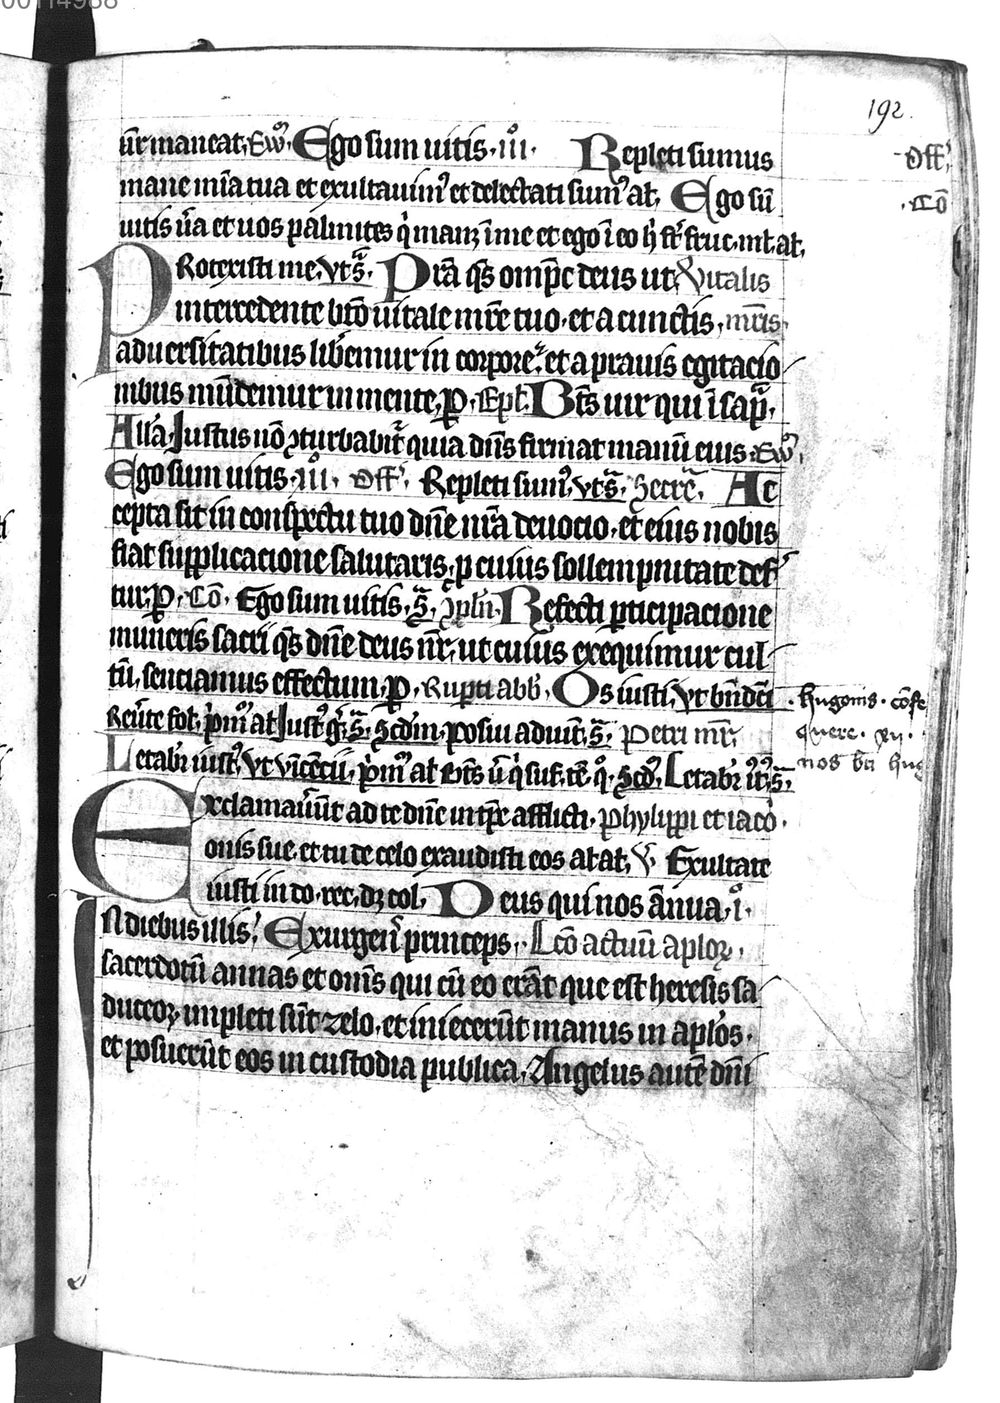 192.
ur̄ maneat. Ew̄. Ego sum uitis. iii. Repleti sumus Off̄
mane mīa tua et exultauimꝰ et delectati sumꝰ at. Ego sū Cō
uitis ūa et uos palmites q̇ manꝫ ī me et ego ī eo
Rotexisti me. vt sͣ. Pr̄a q̄s omp̄c deus ut Vitalis
intercedente bt̄o uitale mr̄e tuo. et a cunctis mr̄is
aduersitatibus libemur in corpore. et a prauis cgitacio
nibus mūdemur in mente. ꝑ. Ep̄l. Bt̄s uir qui ī sap.
All̄a. Justus nō ꝯturbabit̄ quia dn̄s firmat manū eius. Ew̄.
Ego sum uitis. iii. Off̄. Repleti sumꝰ. vt sͣ. Secre. Ac
cepta sit in conspectu tuo dn̄e nr̄a deuocio. et eius nobis
fiat supplicacione salutaris. ꝑ cuius sollempnitate def̄
tur. ꝑ. Cō. Ego sum uitis. sͣ. Refecti ꝑticipacione
muneris sacri q̄s dn̄e deus nr̄. ut cuius exequimur cul
tū. senciamus effectum. ꝑ. Rupti abb̄. Os iusti. vt
hugonis. cōfe
quere. xii.
Letabr̄ iustꝰ. vt vīcēcii.
Exclamauer̄ut ad te dn̄e in tp̄e afflicti. Phylippi et iacō.
onis sue. et tu de celo exaudisti eos at at. V̄. Exultate
iusti in do. rec. dꝫ col. Deus qui nos ānua. i.
N diebus illis. Exurgen̄ princeps. Lc̄o actuū aploꝝ.
sacerdotū annas et om̄s qui cū eo erāt que est heresis sa
duceoꝝ. impleti sūt zelo. et iniecerūt manus in aplōs.
et posuerūt eos in custodia publica. Angelus autē dn̄i